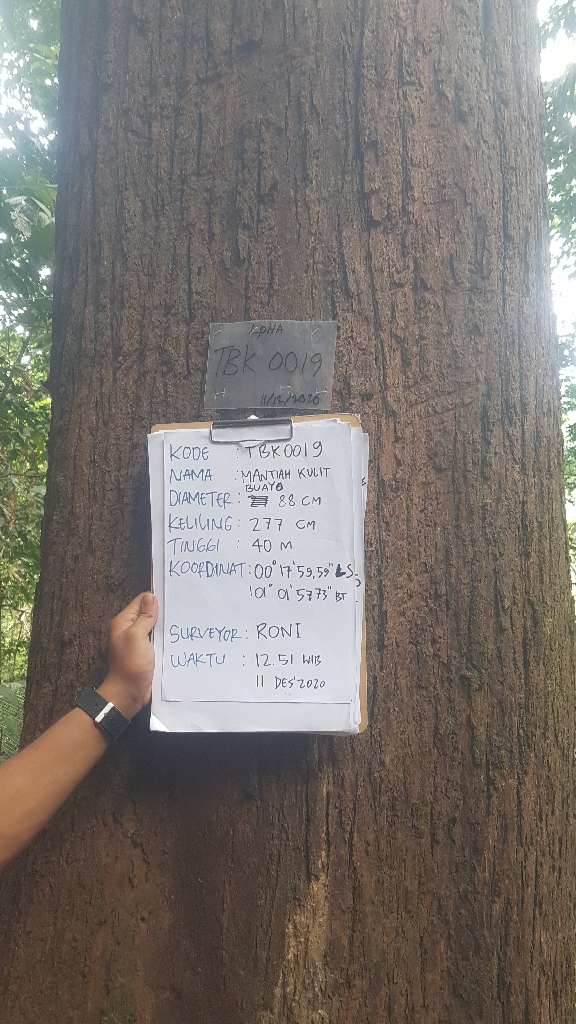 LpHA
TBK 0019
11/12/2020
KODE : TBK0019
NAMA : MANTIAH KULIT
BUAYA
DIAMETER: 88 CM
KELILING: 277 CM
TINGGI : 40 M
KOORDINAT: 00° 17' 59,59" LS
101° 01' 5773" BT
SURVEYOR: RONI
WAKTU : 12.51 WIB
11 DES'2020